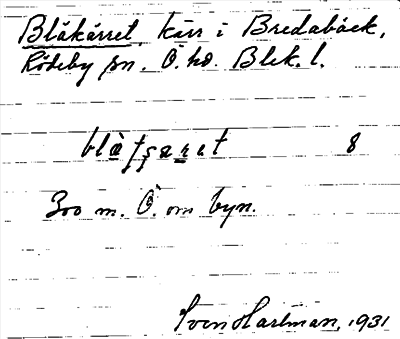 Blåkärret, kärr i Bredabäck,
Rödeby sn. Ö. hd. Blek. l.
8
300 m. Ö. om byn.
Sven Hartman, 1931